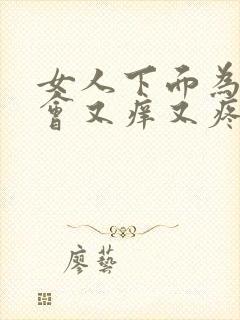 女人下面為
會又痒又疼
廖藝